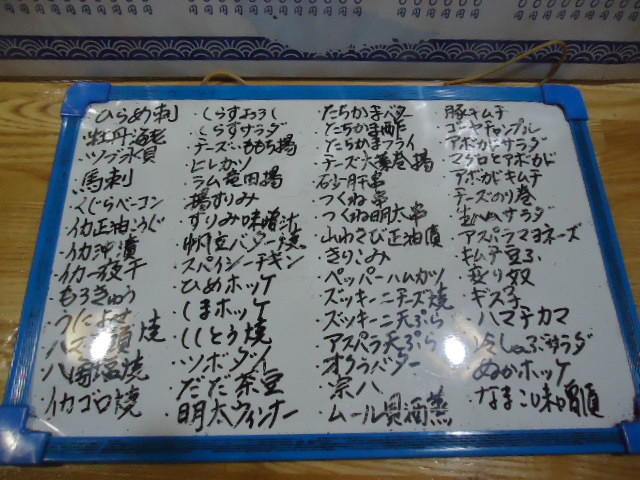 ひらめ刺
・牡丹海老
・ツブ永貝
・馬刺
・くじらベーコン
・イカ正油こうじ
・イカ沖漬
・イカ一夜干
・もろきゅう
・うによせ
焼
塩焼
イカゴロ焼
・しらすおろし
・しらすサラダ
・チーズ・ももち揚
・ヒレカツ
・ラム竜田揚
・揚すりみ
・すりみ味噌汁
・帆立バター焼
・スパイシーチキン
・ひめホッケ
・しまホッケ
・ししとう焼
・ツボダイ
・だだ茶豆
・明太ウィンナー
・たちかまバター
・たちかま酢
・たちかまフライ
・チーズ大葉巻揚
・砂肝串
・つくね串
・つくね明太串
・山わさび正油漬
・きりこみ
・ペッパーハムカツ
・ズッキーニチーズ焼
・ズッキーニ天ぷら
・アスパラ天ぷら
・オクラバター
・宗八
・ムール貝酒蒸
・豚キムチ
・ゴーヤチャンプル
・アボカドサラダ
・マグロとアボカド
・アボカドキムチ
・チーズのり巻
・生ハムサラダ
・アスパラマヨネーズ
・キムチ豆ふ
・炙り奴
・ギス子
・ハマチカマ
・冷しゃぶサラダ
・ぬかホッケ
・なまこ味噌漬